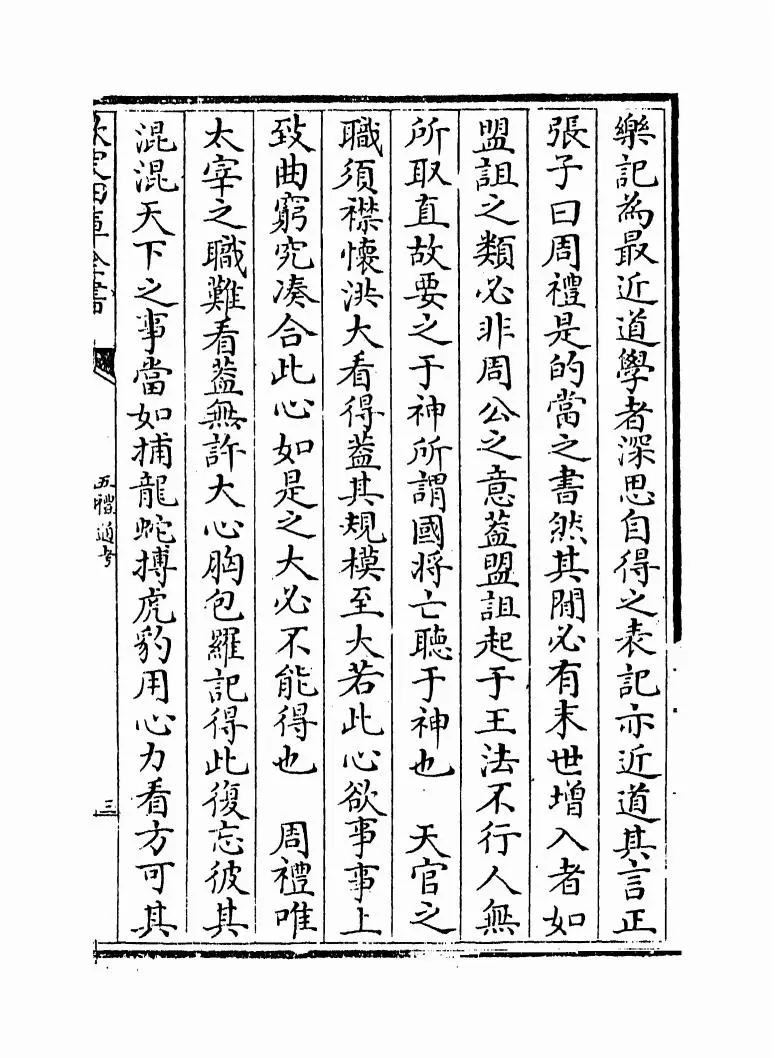 樂記為最近道學者深思自得之表記亦近道其言正
張子曰周禮是的當之書然其間必有末世增入者如
盟詛之類必非周公之意蓋盟詛起于王法不行人無
所取直故要之于神所謂國將亡聽于神也　天官之
職須襟懷洪大看得蓋其規模至大若此心欲事事上
致曲窮究湊合此心如是之大必不能得也　周禮唯
太宰之職難看蓋無許大心胸包羅記得此復忘彼其
混混天下之事當如捕龍蛇搏虎豹用心力看方可其
欽定四庫全書
五禮通考
三